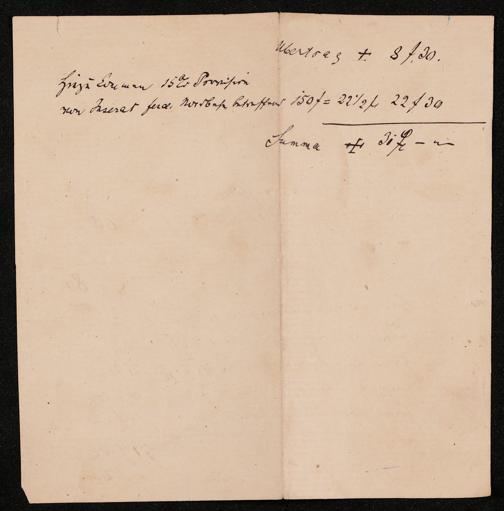 Übertrag + 8 f. 30.
Hiezu kommen 15% Provision
von Inserat ferd. Nordbahn betreffend 150 f = 22 1/2 f 22 f 30
Summa + 31 f — "